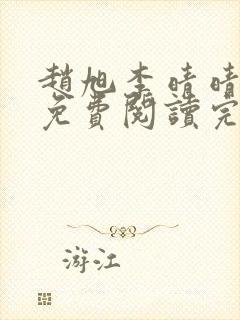 趙旭李晴晴
免費閱讀完
游江